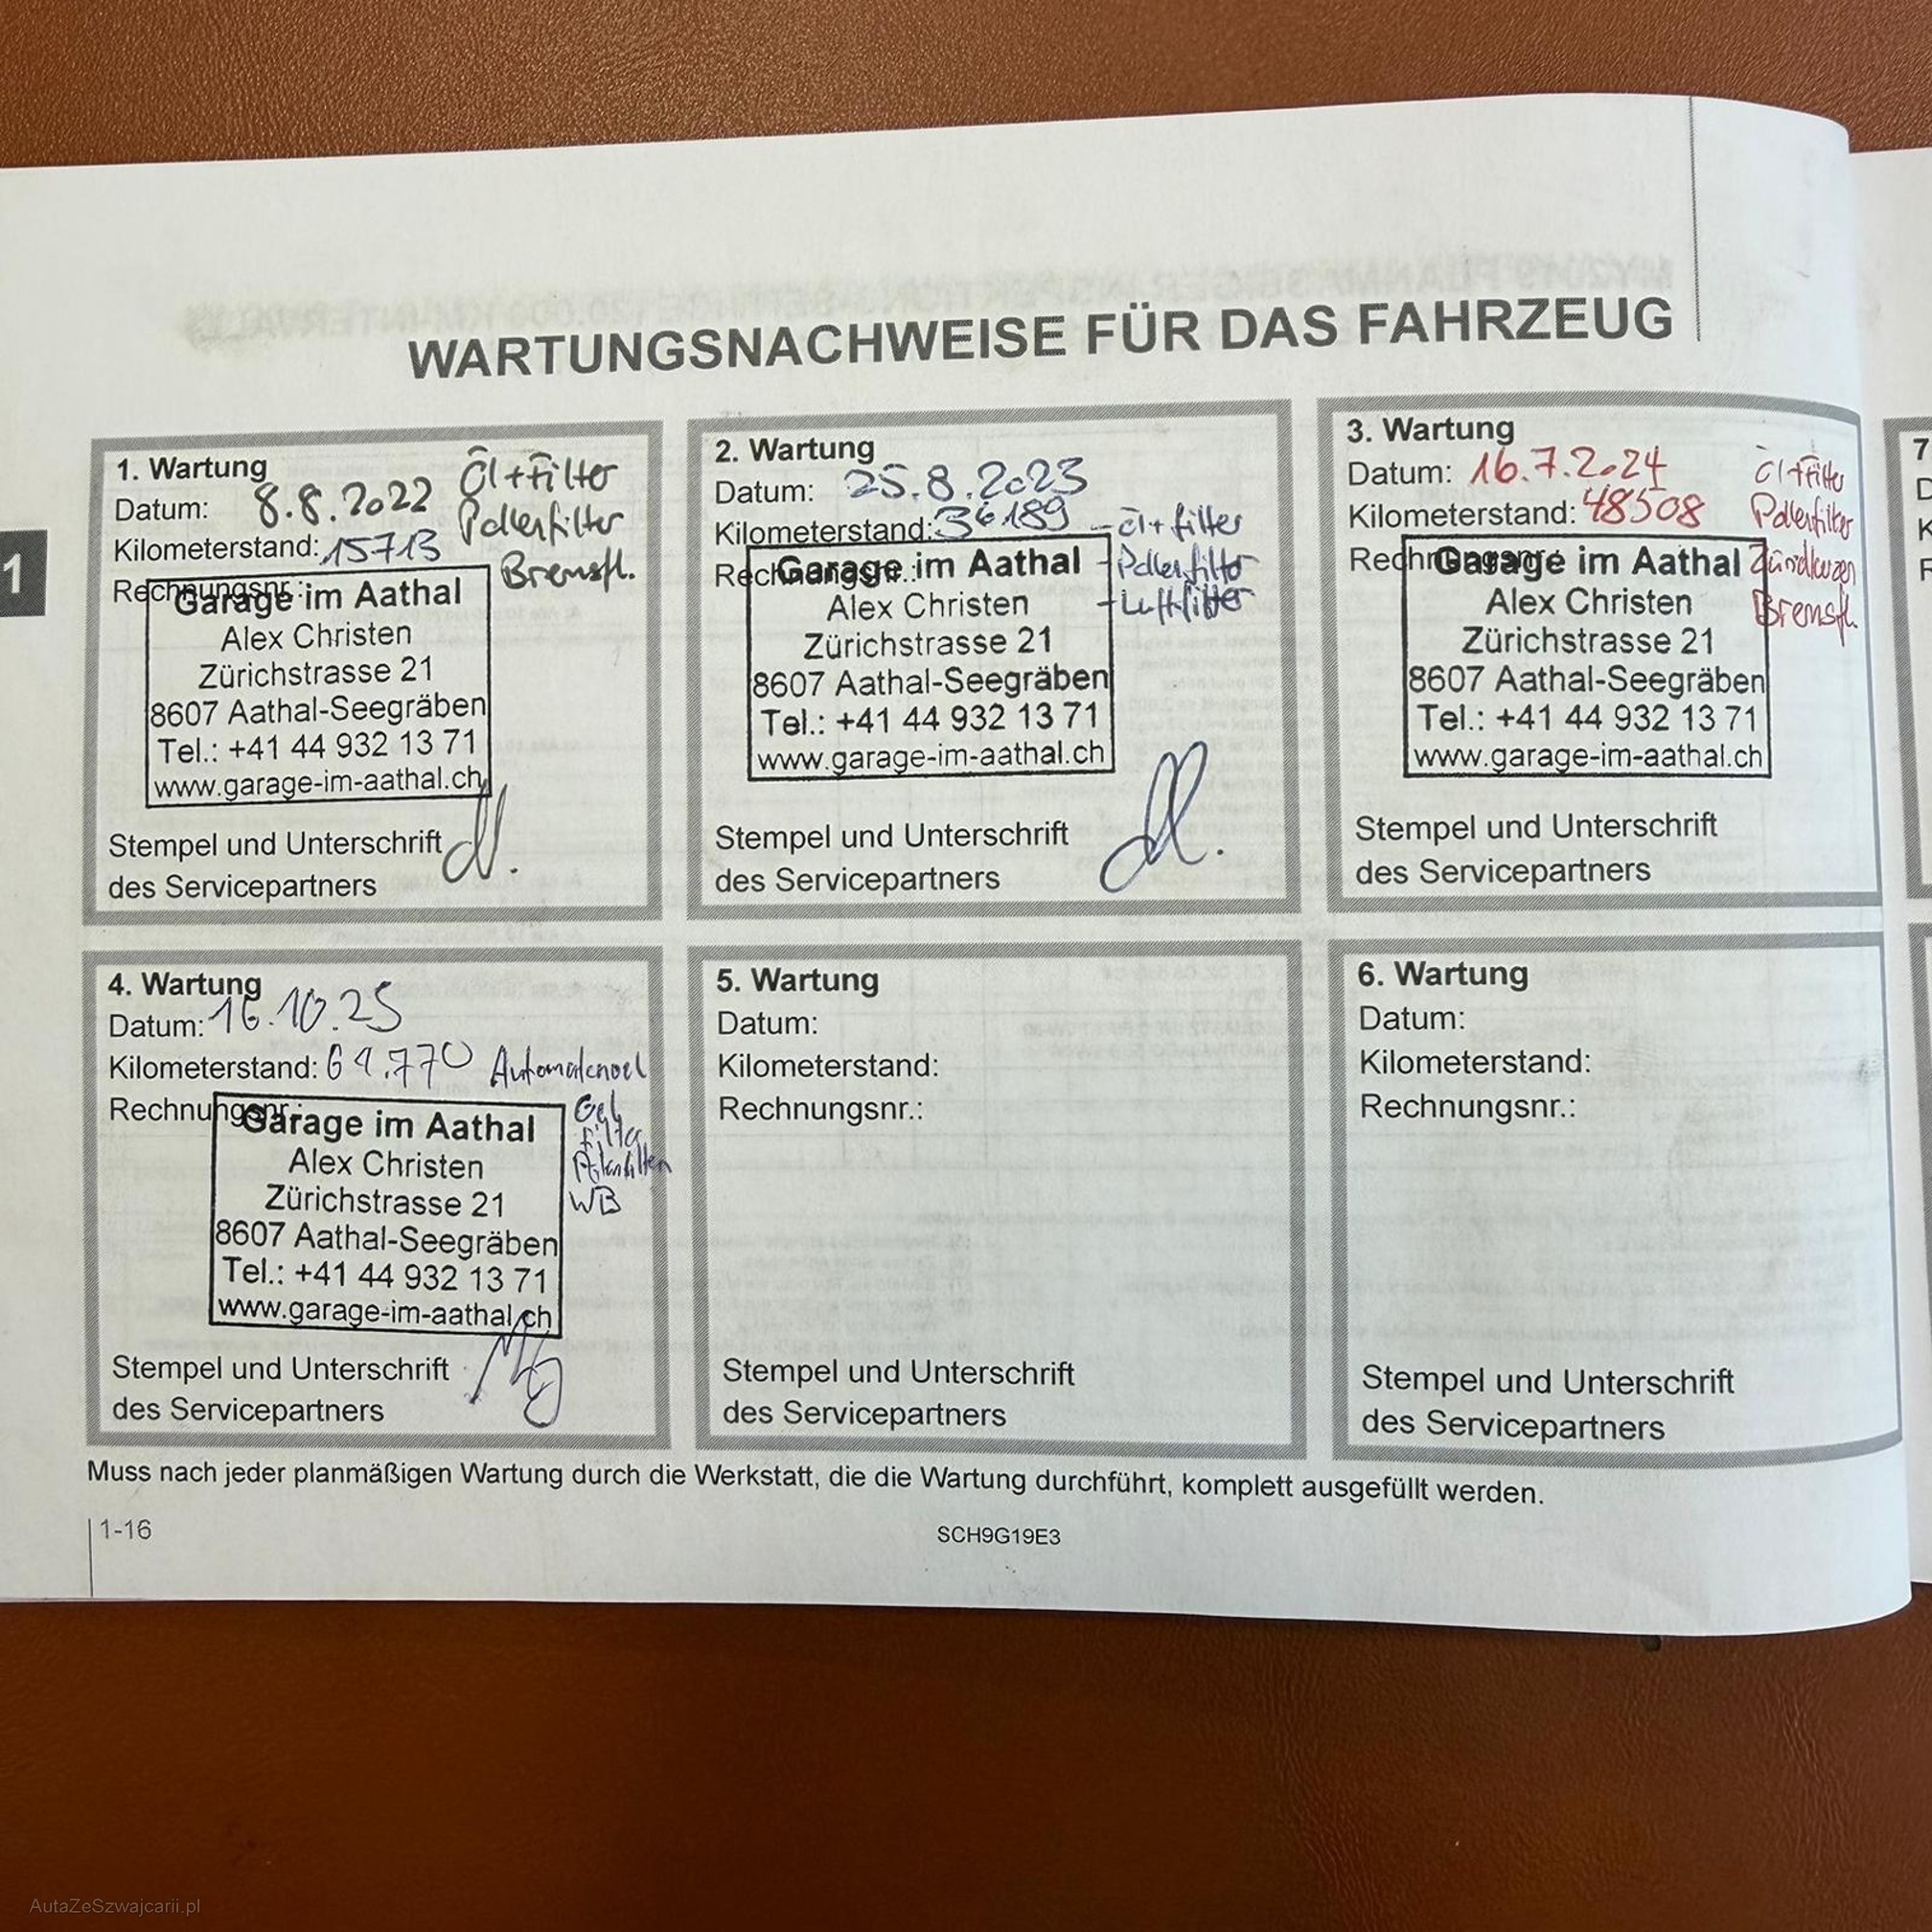 WARTUNGSNACHWEISE FÜR DAS FAHRZEUG
1
1. Wartung
Datum: 8.8.2022
Kilometerstand: 15713
Rechnungsnr.:
Öl + Filter
Pollenfilter
Bremsfl.
Garage im Aathal
Alex Christen
Zürichstrasse 21
8607 Aathal-Seegräben
Tel.: +41 44 932 13 71
www.garage-im-aathal.ch
Stempel und Unterschrift
des Servicepartners
2. Wartung
Datum: 25.8.2023
Kilometerstand: 36189
Rechnungsnr.:
- Öl + Filter
- Pollenfilter
- Luftfilter
Garage im Aathal
Alex Christen
Zürichstrasse 21
8607 Aathal-Seegräben
Tel.: +41 44 932 13 71
www.garage-im-aathal.ch
Stempel und Unterschrift
des Servicepartners
3. Wartung
Datum: 16.7.2024
Kilometerstand: 48508
Rechnungsnr.:
Öl + Filter
Pollenfilter
Zündkerzen
Bremsfl.
Garage im Aathal
Alex Christen
Zürichstrasse 21
8607 Aathal-Seegräben
Tel.: +41 44 932 13 71
www.garage-im-aathal.ch
Stempel und Unterschrift
des Servicepartners
4. Wartung
Datum: 16.10.25
Kilometerstand: 69.770 Automatenoel
Rechnungsnr.:
Oel
Filter
Pollenfilter
WB
Garage im Aathal
Alex Christen
Zürichstrasse 21
8607 Aathal-Seegräben
Tel.: +41 44 932 13 71
www.garage-im-aathal.ch
Stempel und Unterschrift
des Servicepartners
5. Wartung
Datum:
Kilometerstand:
Rechnungsnr.:
Stempel und Unterschrift
des Servicepartners
6. Wartung
Datum:
Kilometerstand:
Rechnungsnr.:
Stempel und Unterschrift
des Servicepartners
7
Muss nach jeder planmäßigen Wartung durch die Werkstatt, die die Wartung durchführt, komplett ausgefüllt werden.
1-16
SCH9G19E3
AutaZeSzwajcarii.pl